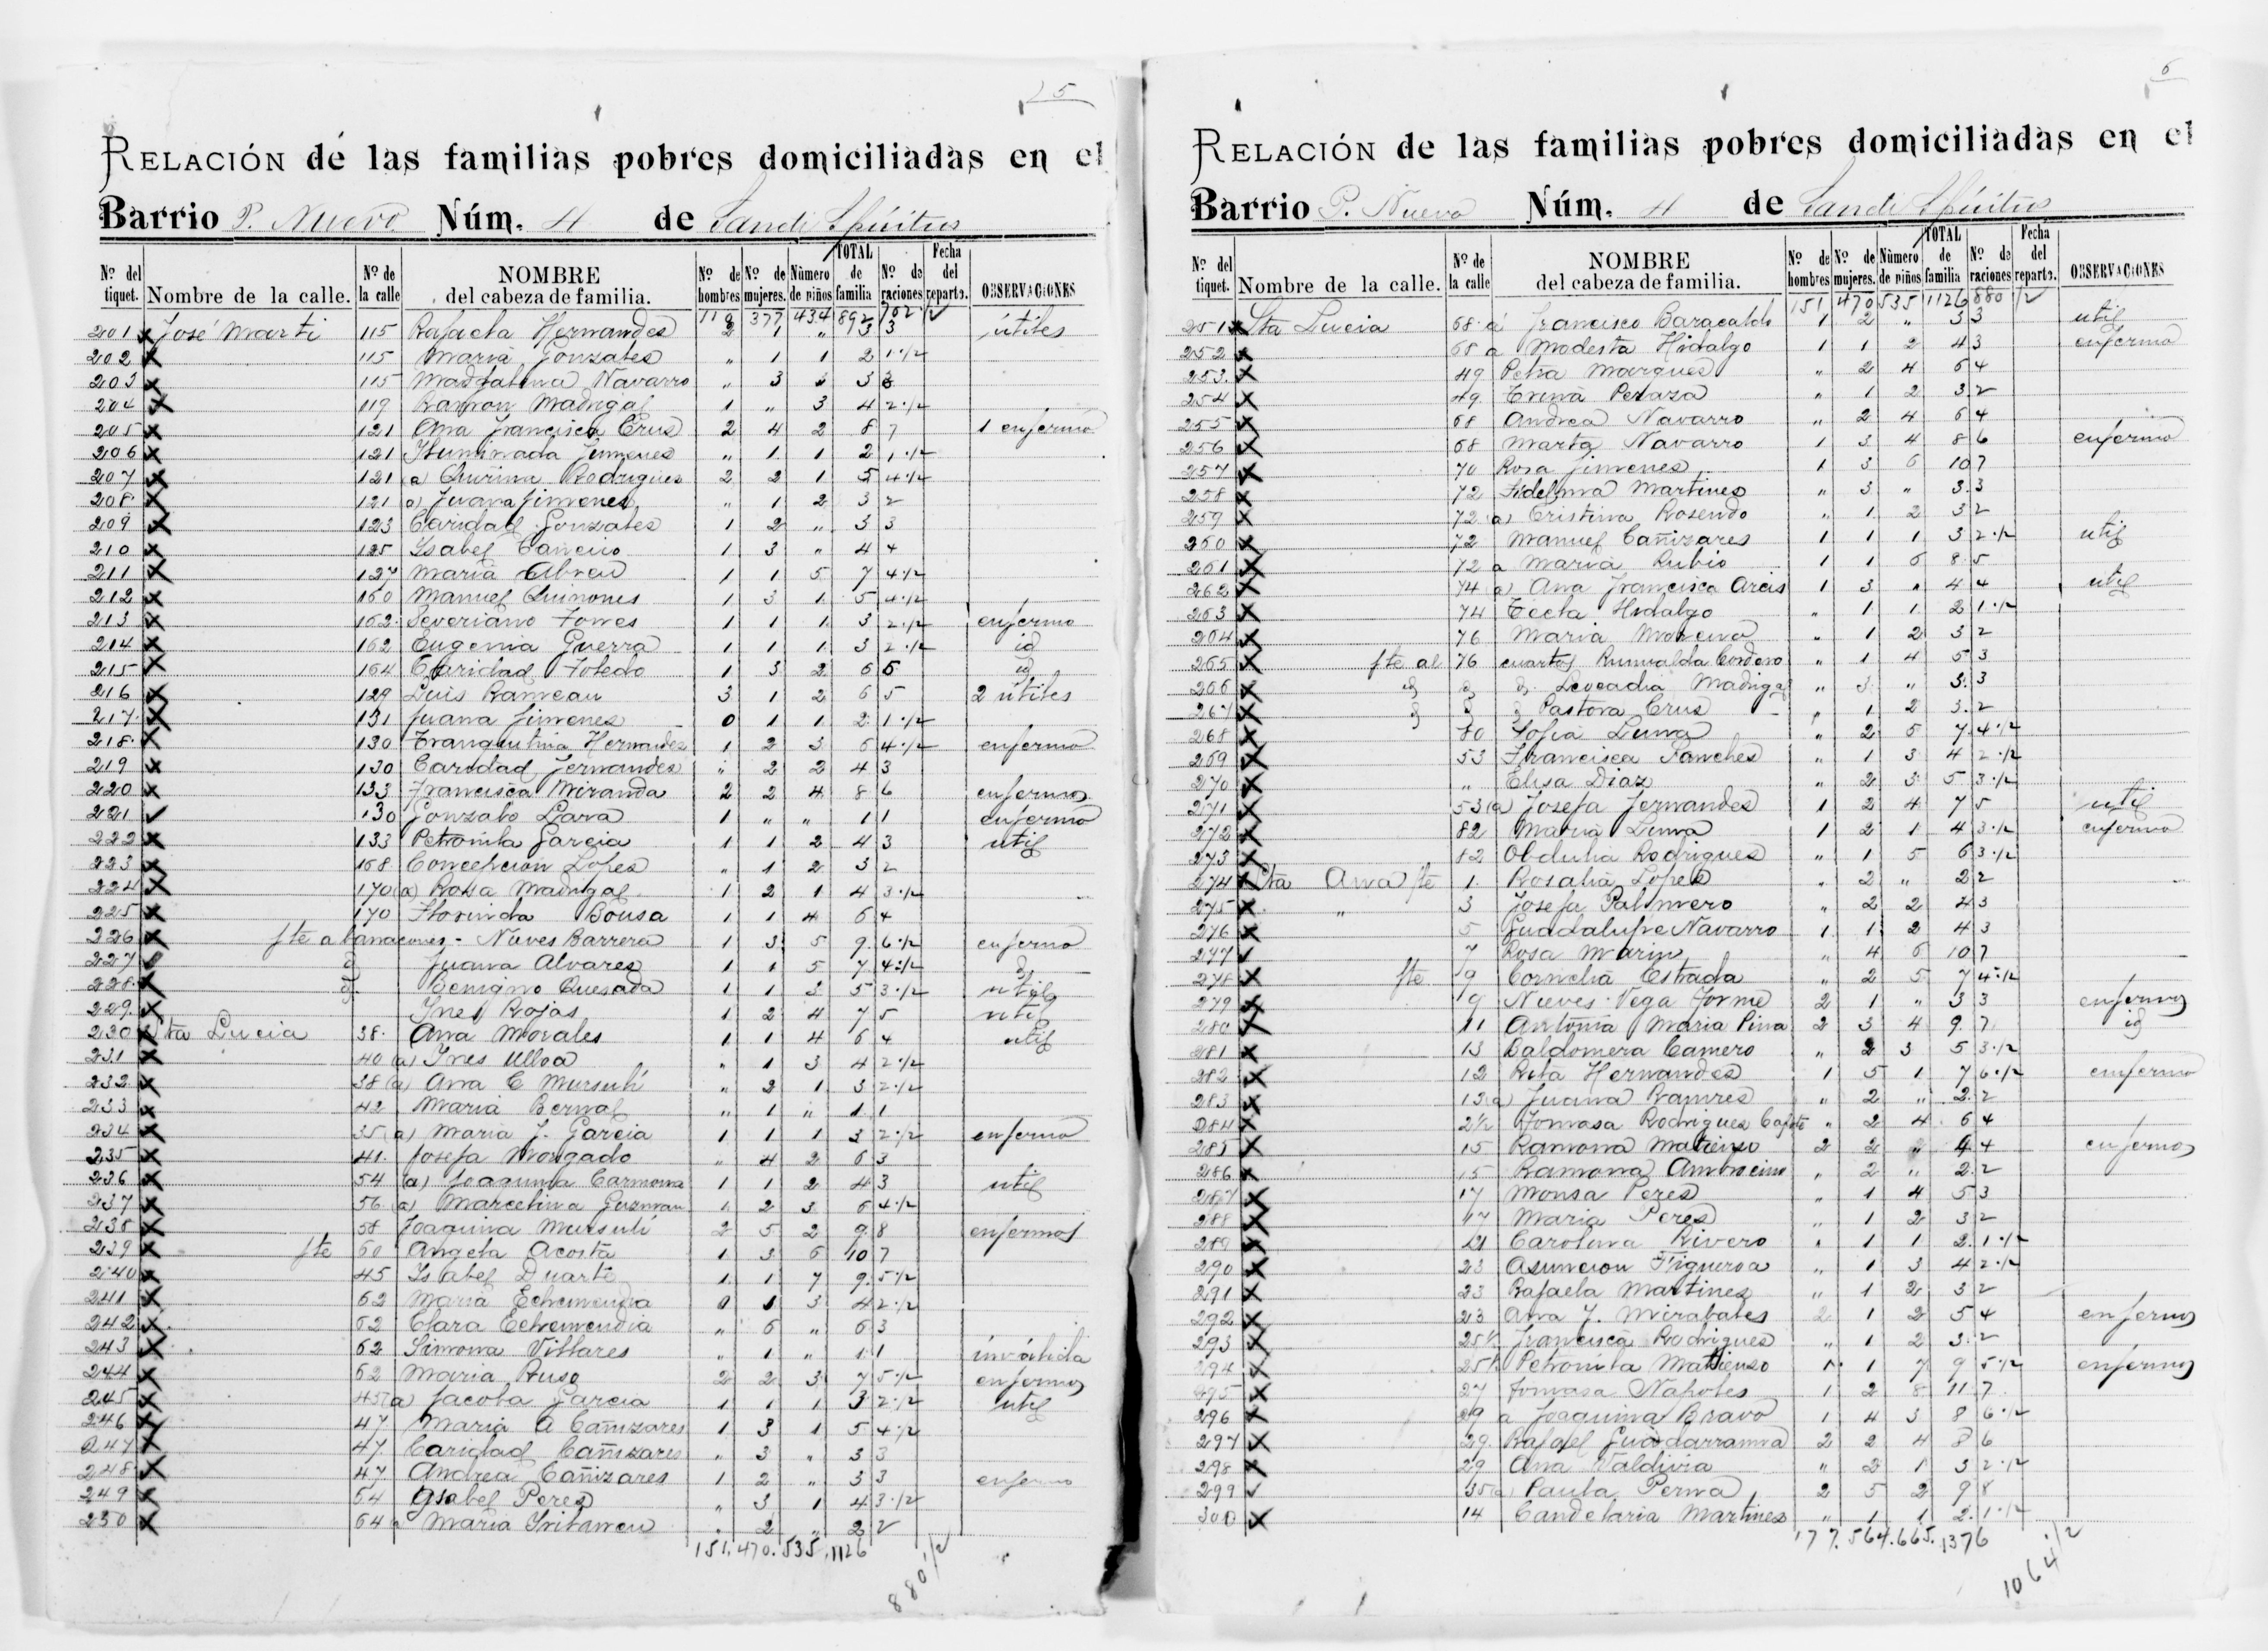 5
RELACIÓN de las familias pobres domiciliadas en el
Barrio P. Nuevo Núm. 4 de Sancti Spíritus
Nº del tiquet. Nombre de la calle. Nº de la calle NOMBRE del cabeza de familia. Nº de hombres Nº de mujeres. Número de niños TOTAL de familia Nº de raciones Fecha del reparto. OBSERVACIONES
377 434 892 702 1/2
201 x José Marti 115 Rafaela Hernandes 2 1 " 3 3 útiles
202 x 115 Maria Gonzales " 1 1 2 1 1/2
203 x 115 Magdalena Navarro " 3 3 3
204 x 119 Ramon Madrigal 1 " 3 4 2 1/2
205 x 121 Ana Francisca Crus 2 4 2 8 7 1 enfermo
206 x 121 Iluminada Jimenes " 1 1 2 1 1/2
207 x 121 (a) Quirina Rodrigues 2 2 1 5 4 1/2
208 x 121 a) Juana Jimenes " 1 2 3 2
209 x 123 Caridad Gonzales 1 2 " 3 3
210 x 125 Isabel 1 3 " 4 4
211 x 127 Maria Abreu 1 1 5 7 4 1/2
212 x 160 Manuel Quinones 1 3 1 5 4 1/2
213 x 162 Severiano Torres 1 1 1 3 2 1/2 enfermo
214 x 162 Eugenia Guerra 1 1 1 3 2 1/2 id
215 x 164 Caridad Toledo 1 3 2 6 5 id
216 x 129 Luis Rameau 3 1 2 6 5 2 utiles
217 x 131 Juana Jimenes 0 1 1 2 1 1/2
218 x 130 Tranquilina Hernandes 1 2 3 6 4 1/2 enfermo
219 x 130 Caridad Fernandes " 2 2 4 3
220 x 133 Francisca Miranda 2 2 4 8 6 enfermos
221 130 Gonzalo Lara 1 " " 1 1 enfermo
222 x 133 Petronila Garcia 1 1 2 4 3 util
223 x 168 Concepcion Lopes " 1 2 3 2
224 x 170 (a) Rosa Madrigal 1 2 1 4 3 1/2
225 x 170 Florinda Sousa 1 1 4 6 4
226 x fte a barracones - Nieves Barrera 1 3 5 9 6 1/2 enfermo
227 id Juana Alvares 1 1 5 7 4 1/2 id
228 x id Benigno Quesada 1 1 3 5 3 1/2 util
229 x Ines Rojas 1 2 4 7 5 util
230 x Sta Lucia 38 Ana Morales 1 1 4 6 4 util
231 x 40 (a) Ines Ulloa " 1 3 4 2 1/2
232 x 38 (a) Ana C Mursulí " 2 1 3 2 1/2
233 x 42 Maria Bernal " 1 " 1 1
234 x 35 (a) Maria J. Garcia 1 1 1 3 2 1/2 enfermo
235 x 41 Josefa Morgado " 4 2 6 3
236 x 54 (a) Joaquina Carmona 1 1 2 4 3 util
237 x 56 (a) Marcelina Guzman 1 2 3 6 4 1/2
238 x 58 Joaquina Mursulí 2 5 2 9 8 enfermos
239 x fte 60 Angela Acosta 1 3 6 10 7
240 x 45 Isabel Duarte 1 1 7 9 5 1/2
241 x 62 Maria Echemendia 0 1 3 4 2 1/2
242 x 62 Clara Echemendia " 6 " 6 3
243 x 62 Simona Villares " 1 " 1 1 inválida
244 x 62 Maria Ruso 2 2 3 7 5 1/2 enfermos
245 x 45 (a) Jacoba Garcia 1 1 1 3 2 1/2 util
246 x 47 Maria A Cañizares 1 3 1 5 4 1/2
247 x 47 Caridad Cañizares " 3 " 3 3
248 x 47 Andrea Cañizares 1 2 " 3 3 enfermo
249 x 64 Ysabel Peres " 3 1 4 3 1/2
250 x 64 a Maria " 2 " 2 2
151. 470. 535. 1126 880 1/2
6
RELACIÓN de las familias pobres domiciliadas en el
Barrio P. Nuevo Núm. 4 de Sancti Spíritus
Nº del tiquet. Nombre de la calle. Nº de la calle NOMBRE del cabeza de familia. Nº de hombres Nº de mujeres. Número de niños TOTAL de familia Nº de raciones Fecha del reparto. OBSERVACIONES
151 470 535 1126 880 1/2
251 x Sta Lucia 68 a Francisco Baracaldo 1 2 " 3 3 util
252 x 68 a Modesta Hidalgo 1 1 2 4 3 enfermo
253 x 49 Petra Marques " 2 4 6 4
254 x 49 Trina Peraza " 1 2 3 2
255 x 68 Andrea Navarro " 2 4 6 4
256 x 68 Marta Navarro 1 3 4 8 6 enfermo
257 x 70 Rosa Jimenes 1 3 6 10 7
258 x 72 Fidelina Martines " 3 " 3 3
259 x 72 (a) Cristina Rosendo " 1 2 3 2
260 x 72 Manuel Cañizares 1 1 1 3 2 1/2 util
261 x 72 a Maria Rubio 1 1 6 8 5
262 x 74 (a) Ana Francisca Arcis 1 3 " 4 4 util
263 x 74 Tecla Hidalgo " 1 1 2 1 1/2
264 x 76 Maria Moreno " 1 2 3 2
265 x fte al 76 cuartos Rumualda Cordero " 1 4 5 3
266 x id id id Leocadia Madrigal " 3 " 3 3
267 x id id id Pastora Crus " 1 2 3 2
268 x 80 Sofia Luna " 2 5 7 4 1/2
269 x 53 Francisca Sanches " 1 3 4 2 1/2
270 x " Elisa Diaz " 2 3 5 3 1/2
271 x 53 (a) Josefa Fernandes 1 2 4 7 5 util
272 x 82 Maria Luna 1 2 1 4 3 1/2 enfermo
273 x 82 Obdulia Rodrigues " 1 5 6 3 1/2
274 x Sta Ana fte 1. Rosalia Lopes " 2 " 2 2
275 x " 3 Josefa Palmero " 2 2 4 3
276 x 5 Guadalupe Navarro 1 1 2 4 3
277 7 Rosa Marin " 4 6 10 7
278 x fte 9 Cornelia Estrada " 2 5 7 4 1/2
279 x 9 Nieves Vega 2 1 " 3 3 enfermos
280 x 11 Antonia Maria Pina 2 3 4 9 7 id
281 x 13 Baldomera Camero " 2 3 5 3 1/2
282 x 12 Rita Hernandes 1 5 1 7 6 1/2 enfermo
283 x 13 (a) Juana Ramires " 2 " 2 2
284 x 21/2 Tomasa Rodrigues " 2 4 6 4
285 x 15 Ramona Matienzo 2 2 " 4 4 enfermos
286 x 15 Ramona " 2 " 2 2
287 x 17 Monsa Peres " 1 4 5 3
288 x 17 Maria Peres " 1 2 3 2
289 x 21 Carolina Rivero " 1 1 2 1 1/2
290 x 23 Asuncion Figueroa " 1 3 4 2 1/2
291 x 23 Rafaela Martines " 1 2 3 2
292 x 23 Ana J. Mirabales 2 1 2 5 4 enfermos
293 x 25 Francisca Rodrigues " 1 2 3 2
294 x 25 Petronila Matienzo 1 1 7 9 5 1/2 enfermos
295 x 27 Tomasa Napoles 1 2 8 11 7
296 x 29 a Joaquina Bravo 1 4 3 8 6 1/2
297 x 29 Rafael Guadarrama 2 2 4 8 6
298 x 29 Ana Valdivia " 2 1 3 2 1/2
299 35 (a) Paula Perna 2 5 2 9 8
300 x 14 Candelaria Martines " 1 1 2 1 1/2
177. 564. 665. 1376 1064 1/2